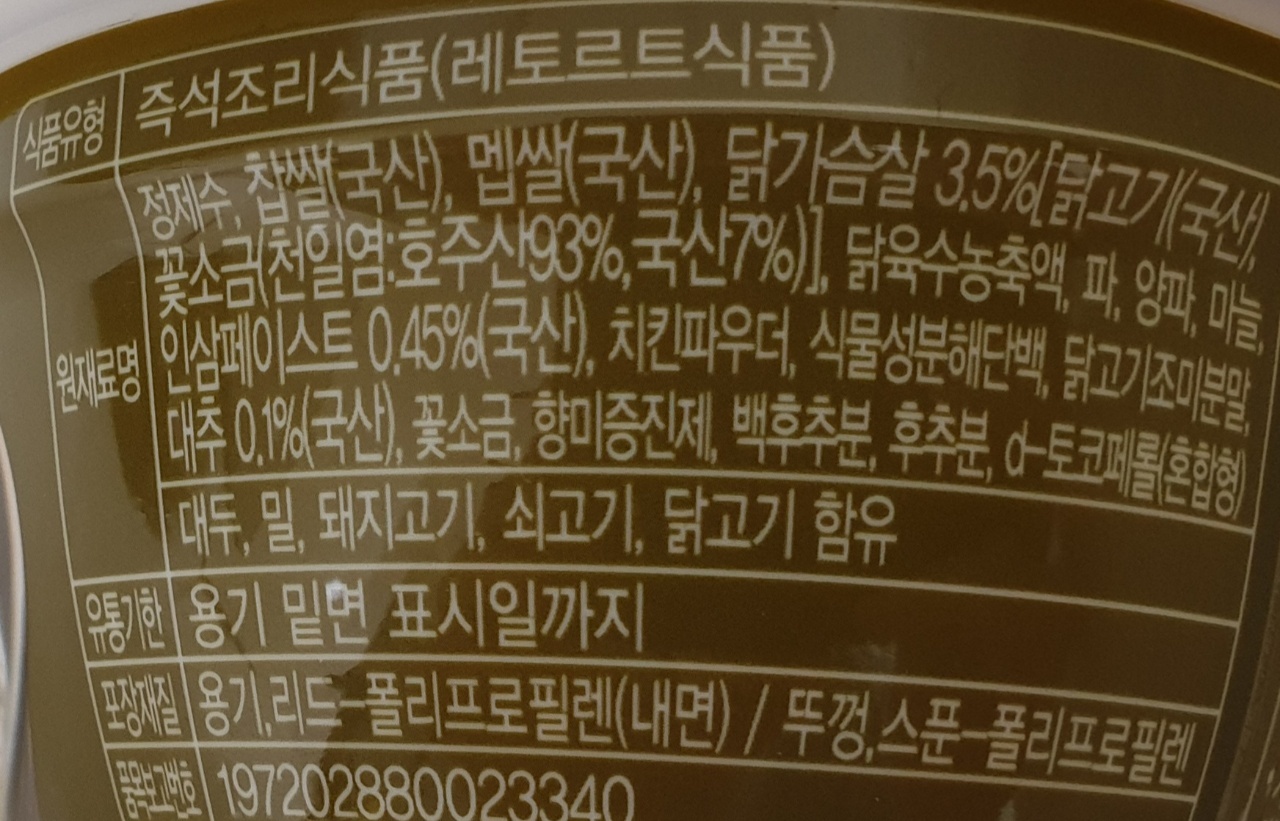 식품유형 즉석조리식품(레토르트식품)
원재료명 정제수, 찹쌀(국산), 멥쌀(국산), 닭가슴살 3.5%[닭고기(국산),
꽃소금(천일염:호주산93%,국산7%)], 닭육수농축액, 파, 양파, 마늘,
인삼페이스트 0.45%(국산), 치킨파우더, 식물성분해단백, 닭고기조미분말,
대추 0.1%(국산), 꽃소금, 향미증진제, 백후추분, 후추분, d-토코페롤(혼합형)
대두, 밀, 돼지고기, 쇠고기, 닭고기 함유
유통기한 용기 밑면 표시일까지
포장재질 용기,리드-폴리프로필렌(내면) / 뚜껑,스푼-폴리프로필렌
품목보고번호 197202880023340